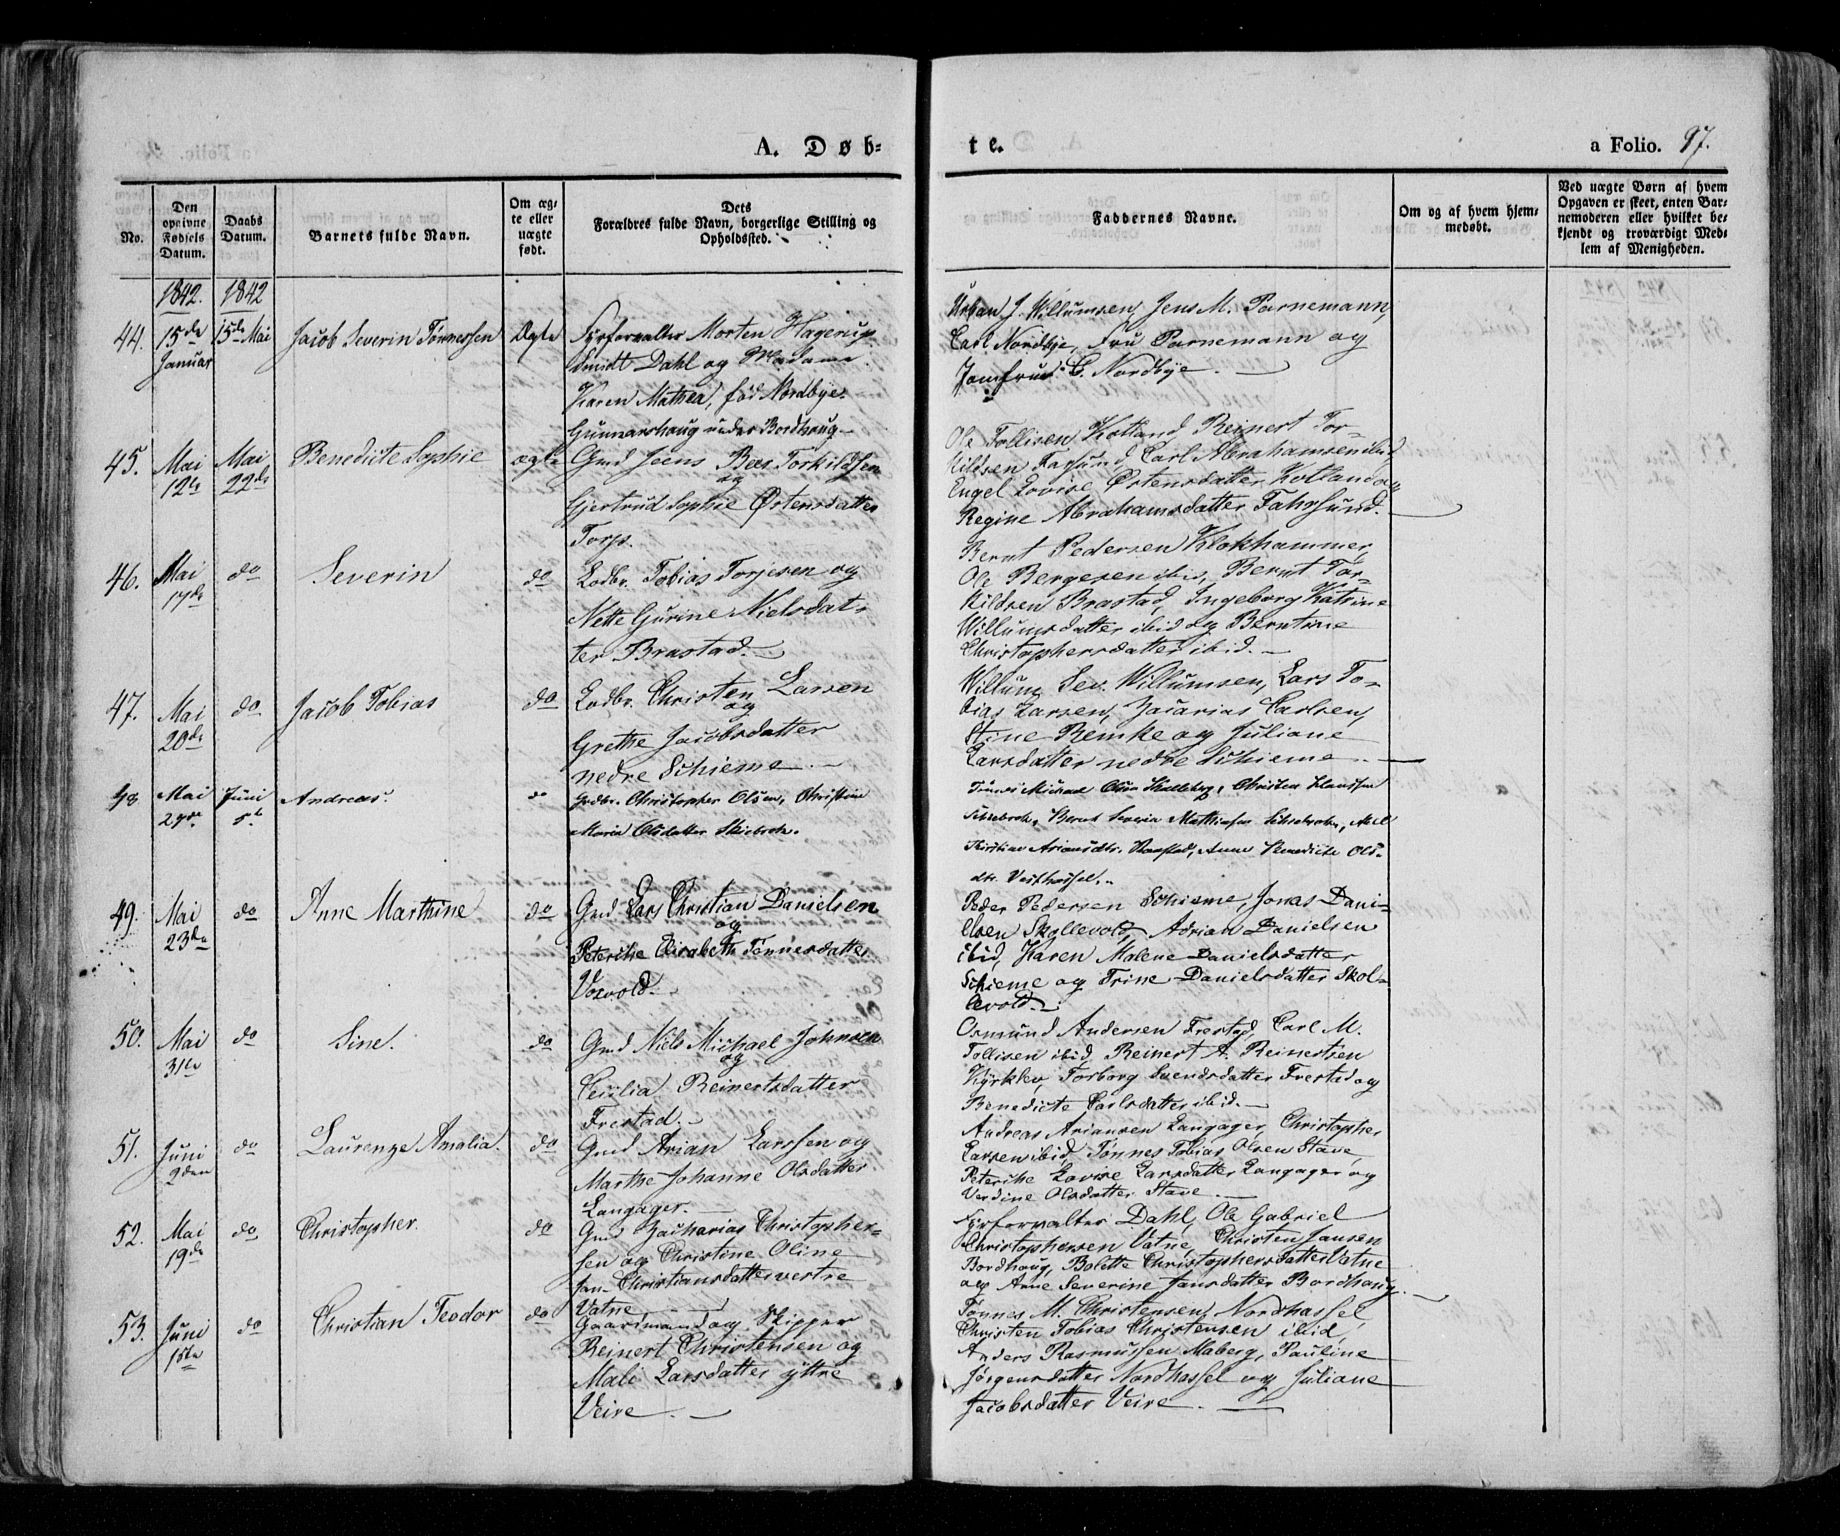 A. Døb-
te.
a Folio. 97.
No.
Den opgivne Fødsels Datum.
Daabs Datum.
Barnets fulde Navn.
Om ægte eller uægte født.
Dets Forældres fulde Navn, borgerlige Stilling og Opholdssted.
Faddernes Navne.
Om og af hvem hjemmedøbt.
Ved uægte Børn af hvem Opgaven er skeet, enten Barnemoderen eller hvilket bekjendt og troværdigt Medlem af Menigheden.
1842. 1842
44. 15de Januar 15de Mai Jacob Severin Tønnessen Ægte
Fyrforvalter Morten Hagerup
Smidt Dahl og Madame
Karen Mathea, fød Nordbye.
Gunnarshaug under Bordhaug
Urban J. Willumsen, Jens M. Parnemann,
Carl Nordbye, Fru Parnemann og
Jomfrue C. Nordbye.
45. Mai 12te Mai 22de Benedicte Sophie ægte
Gmd Jeens Bees Torkildsen
og
Gjertrud Sophie Østensdatter
Torp.
Ole Tollisen Kotland, Reinert Tor-
kildsen Farsund, Carl Abrahamsen ibid
Engel Lovise Østensdatter Kotland og
Regine Abrahamsdatter Fahrsund.
46. Mai 17de do Severin do
Lodbr. Tobias Torjesen og
Nette Gurine Nielsdat-
ter Brastad.
Bernt Pedersen Klokhammer,
Ole Bergesen ibid, Bernt Tor-
kildsen Brastad, Ingeborg Katrine
Willumsdatter ibid og Berntine
Christophersdatter ibid.
47. Mai 20de do Jacob Tobias do
Lodbr. Christen Larsen
og
Grethe Jacobsdatter
nedre Schieme
Willum Sev. Willumsen, Lars To-
bias Larsen, Zacarias Carlsen,
Stine Remke og Juliane
Larsdatter nedre Schieme.
48 Mai 29de Juni 5te Andreas. do
Lodbr. Christopher Olsen, Christine
Maria Olsdatter Skiebroth.
Tønnes Michael Olsen Skolleberg, Christen Klausen
Schiebroth, Bernt Severin Matthiasen Schiebroth, Abel
Kiristine Ariansdtr. Vanstad, Anne Benedicte Ols-
dtr. Vesthassel.
49. Mai 23de do Anne Marthine do
Gmd Lars Christian Danielsen
og
Peterike Elisabeth Tønnesdatter
Vosvold.
Peder Pedersen Schieme, Jonas Dani-
elsen Skollevold, Adrian Danielsen
ibid, Karen Malene Danielsdatter
Schieme og Trine Danielsdatter Skol-
levold.
50. Mai 31te do Sine. do
Gmd Niels Michael Johnsen
og
Cecilia Reinertsdatter
Frestad.
Osmund Andersen Frestad, Carl M.
Tollisen ibid, Reinert A. Reinertsen
Kyrklev, Torborg Svendsdatter Frestad og
Benedicte Carlsdatter ibid.
51. Juni 2den do Laurenze Amalia. do
Gmd Arian Larssen og
Marthe Johanne Olsdatter
Langager.
Andreas Ariansen Langager, Christopher
Larsen ibid, Tønnes Tobias Olsen Stave,
Peterike Lovise Larsdatter Langager og
Verdine Olsdatter Stave
52. Mai 19de do Christopher. do
Gmd Zacharias Christopher-
sen og Christine Oline
Jan-Christiansdatter vestre
Vatne
Fyrforvalter Dahl, Ole Gabriel
Christophersen Vatne, Christen Jansen
Bordhaug, Bolette Christophersdatter Vatne
og Anne Severine Jansdatter Bordhaug.
53. Juni 1ste do Christian Teodor do
Gaardmand og Skipper
Reinert Christensen og
Mali Larsdatter yttre
Veire.
Tønnes M. Christensen Nordhassel,
Christen Tobias Christensen ibid,
Anders Rasmussen Maberg, Pauline
Jørgensdatter Nordhassel og Juliane
Jacobsdatter Veire.